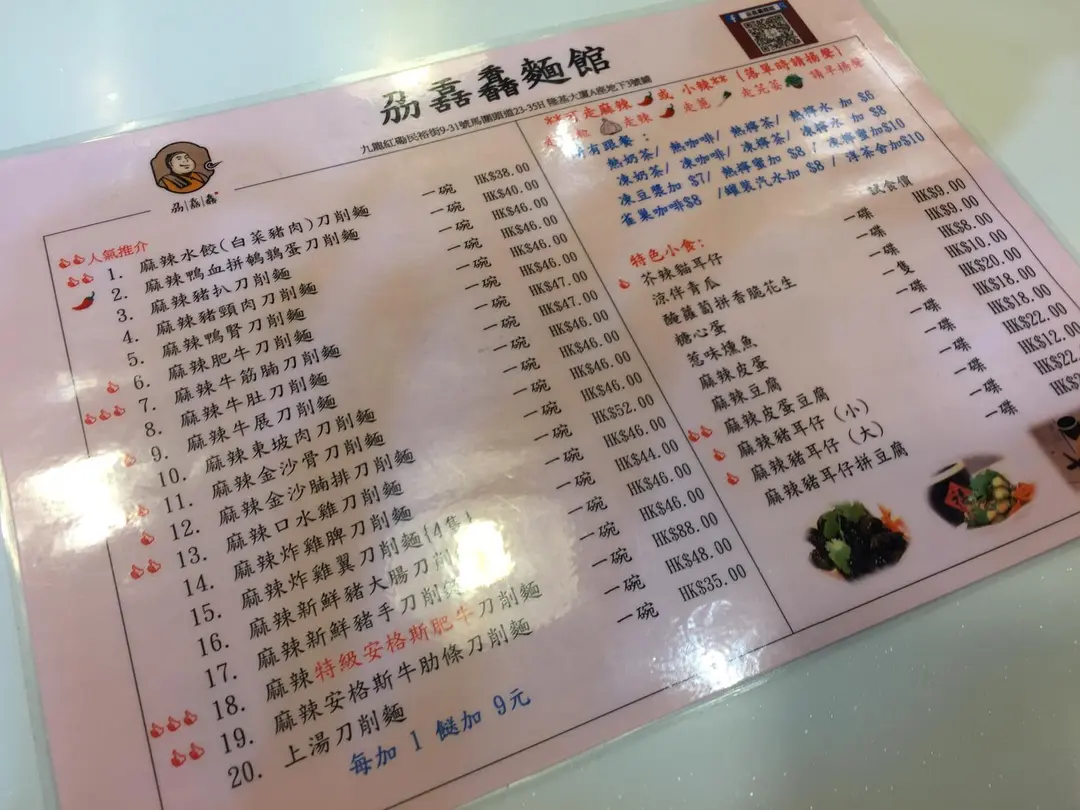 刕嚞馫麵館
九龍紅磡民裕街9-31號馬圍頭道23-35H 隆基大廈A座地下3號舖
人氣推介
1. 麻辣水餃(白菜豬肉)刀削麵
2. 麻辣鴨血拼鵪鶉蛋刀削麵
3. 麻辣豬扒刀削麵
4. 麻辣豬頸肉刀削麵
5. 麻辣鴨腎刀削麵
6. 麻辣肥牛刀削麵
7. 麻辣牛筋腩刀削麵
8. 麻辣牛肚刀削麵
9. 麻辣牛展刀削麵
10. 麻辣東坡肉刀削麵
11. 麻辣金沙骨刀削麵
12. 麻辣金沙腩排刀削麵
13. 麻辣口水雞刀削麵
14. 麻辣炸雞脾刀削麵
15. 麻辣炸雞翼刀削麵(4隻)
16. 麻辣新鮮豬大腸刀削
17. 麻辣新鮮豬手刀削
18. 麻辣特級安格斯肥牛刀削麵
19. 麻辣安格斯牛肋條刀削麵
20. 上湯刀削麵
一碗 HK$38.00
一碗 HK$40.00
一碗 HK$46.00
一碗 HK$46.00
一碗 HK$46.00
一碗 HK$46.00
一碗 HK$47.00
一碗 HK$47.00
一碗 HK$46.00
一碗 HK$46.00
一碗 HK$46.00
一碗 HK$52.00
一碗 HK$46.00
一碗 HK$44.00
一碗 HK$46.00
一碗 HK$46.00
一碗 HK$88.00
一碗 HK$48.00
一碗 HK$35.00
每加 1 餸加 9元
可走麻辣 或 小辣 (落單時請揚聲)
走辣 走蔥 走芫荽 請早揚聲
所有跟餐：
熱奶茶/ 熱咖啡/ 熱檸茶/ 熱檸水 加 $6
凍奶茶/ 凍咖啡/ 凍檸茶/ 凍檸水 加 $8
凍豆漿加 $7/ 熱檸蜜加 $8 / 凍檸蜜加$10
雀巢咖啡$8 /罐裝汽水加 $8 / 洋茶舍加$10
試食價
特色小食：
芥辣貓耳仔
涼伴青瓜
醃蘿蔔拼香脆花生
糖心蛋
惹味燻魚
麻辣皮蛋
麻辣豆腐
麻辣皮蛋豆腐
麻辣豬耳仔 (小)
麻辣豬耳仔 (大)
麻辣豬耳仔拼豆腐
一碟 HK$9.00
一碟 HK$9.00
一碟 HK$8.00
一隻 HK$10.00
一碟 HK$20.00
一碟 HK$18.00
一碟 HK$18.00
一碟 HK$22.00
一碟 HK$12.00
一碟 HK$22.
HK$